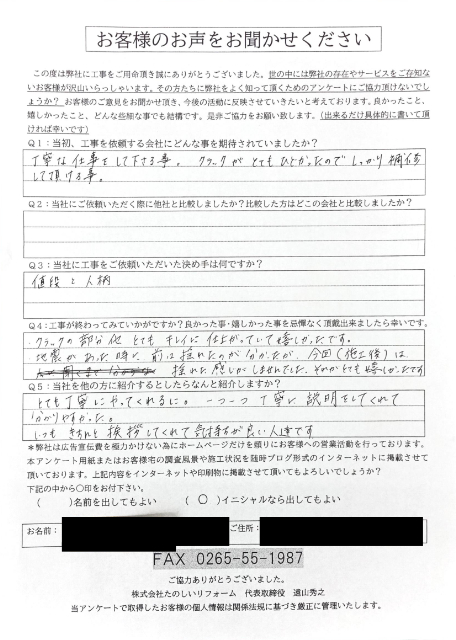 お客様のお声をお聞かせください
この度は弊社に工事をご用命頂き誠にありがとうございました。世の中には弊社の存在やサービスをご存知な
いお客様が沢山いらっしゃいます。その方たちに弊社をよく知って頂くためのアンケートにご協力頂けないでし
ょうか？ お客様のご意見をお聞かせ頂き、今後の活動に反映させていきたいと考えております。良かったこと、
嬉しかったこと、どんな些細な事でも結構です。是非ご協力をお願い致します。（出来るだけ具体的に書いて頂
ければ幸いです）
Q１：当初、工事を依頼する会社にどんな事を期待されていましたか？
丁寧な仕事をして下さる事。 クラックがとてもひどかったのでしっかり補修
して頂ける事。
Q２：当社にご依頼いただく際に他社と比較しましたか？比較した方はどこの会社と比較しましたか？
Q３：当社に工事をご依頼いただいた決め手は何ですか？
値段と人柄
Q４：工事が終わってみていかがですか？良かった事・嬉しかった事を忌憚なく頂戴出来ましたら幸いです。
クラックの部分他とてもキレイに仕上がっていて嬉しかったです。
地震があった時に、前は揺れたのが分かったが、今回（施工後）は
揺れた感じがしませんでした。それがとても嬉しかったです
Q５：当社を他の方に紹介するとしたらなんと紹介しますか？
とても丁寧にやってくれるに。 一つ一つ丁寧に説明をしてくれて
分かりやすかった。
いつもきちんと挨拶してくれて気持ちが良い人達です
＊弊社は広告宣伝費を極力かけない為にホームページだけを頼りにお客様への営業活動を行っております。
本アンケート用紙またはお客様宅の調査風景や施工状況を随時ブログ形式のインターネットに掲載させて
頂いております。上記内容をインターネットや印刷物に掲載させて頂いてもよろしいでしょうか？
下記の中から○印をお付下さい。
（ ）名前を出してもよい （ ○ ）イニシャルなら出してもよい
お名前： ご住所：
FAX 0265-55-1987
ご協力ありがとうございました。
株式会社たのしいリフォーム 代表取締役 遠山秀之
当アンケートで取得したお客様の個人情報は関係法規に基づき厳正に管理いたします。